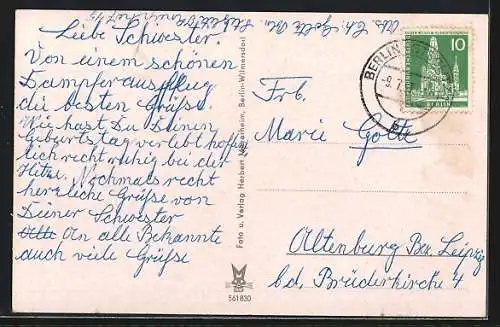 Liebe Schwester!
Von einem schönen
Dampferausflug
die besten Grüße.
Wie hast Du Deinen
Geburtstag verlebt hoffent
lich recht ruhig bei der
Hitze. Nochmals recht
herzliche Grüße von
Deiner Schwester
An alle Bekannte
auch viele Grüße
Foto u. Verlag Herbert Meyerheim, Berlin-Wilmersdorf
561830
BERLIN
10
BERLIN
Frb.
Marie Golte
Altenburg Bez. Leipzig
b.d. Brüderkirche 4